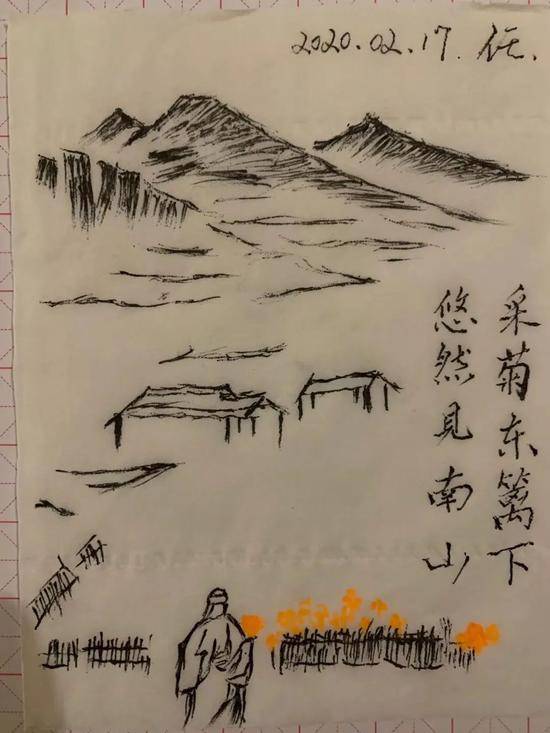 2020.02.17. 任.
采菊东篱下
悠然见南山